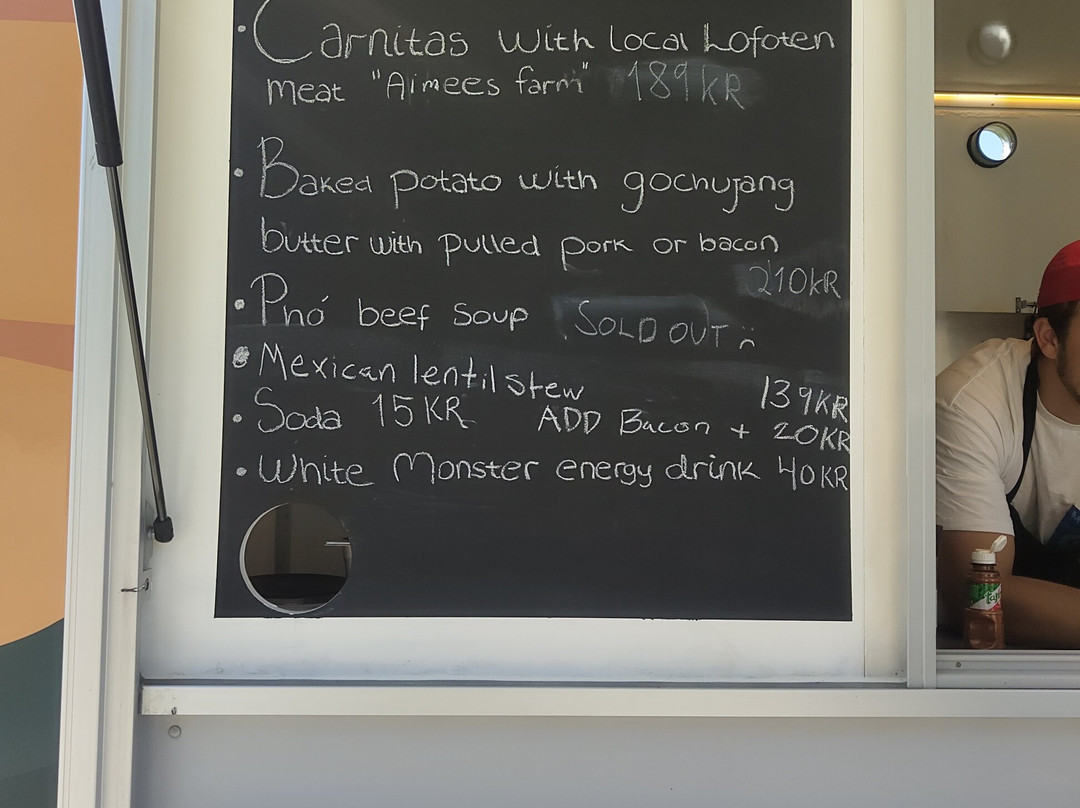 • Carnitas with local Lofoten
meat "Aimees farm" 189KR
• Baked potato with gochujang
butter with pulled pork or bacon
210KR
• Phó beef soup SOLD OUT :(
• Mexican lentil stew 139KR
• Soda 15KR ADD Bacon + 20KR
• White Monster energy drink 40KR